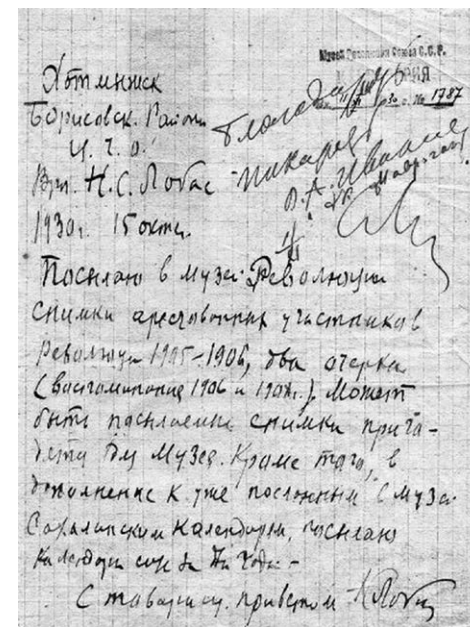 Музей Революции Союза С.С.Р.
№ 1787
Хотмижск
Борисовск. Района
Ц. Ч. О.
Врч. Н. С. Лобас
1930г. 15 окт.
Посылаю в музей Революции
снимки арестованных участников
революции 1905-1906, два очерка
(воспоминание 1906 и 1907г.). Может
быть посылаемые снимки приго-
дятся для Музея. Кроме того, в
дополнение к уже посланным
Сахалинским Календарям, посылаю
календари
С товарищ. приветом Н Лобас